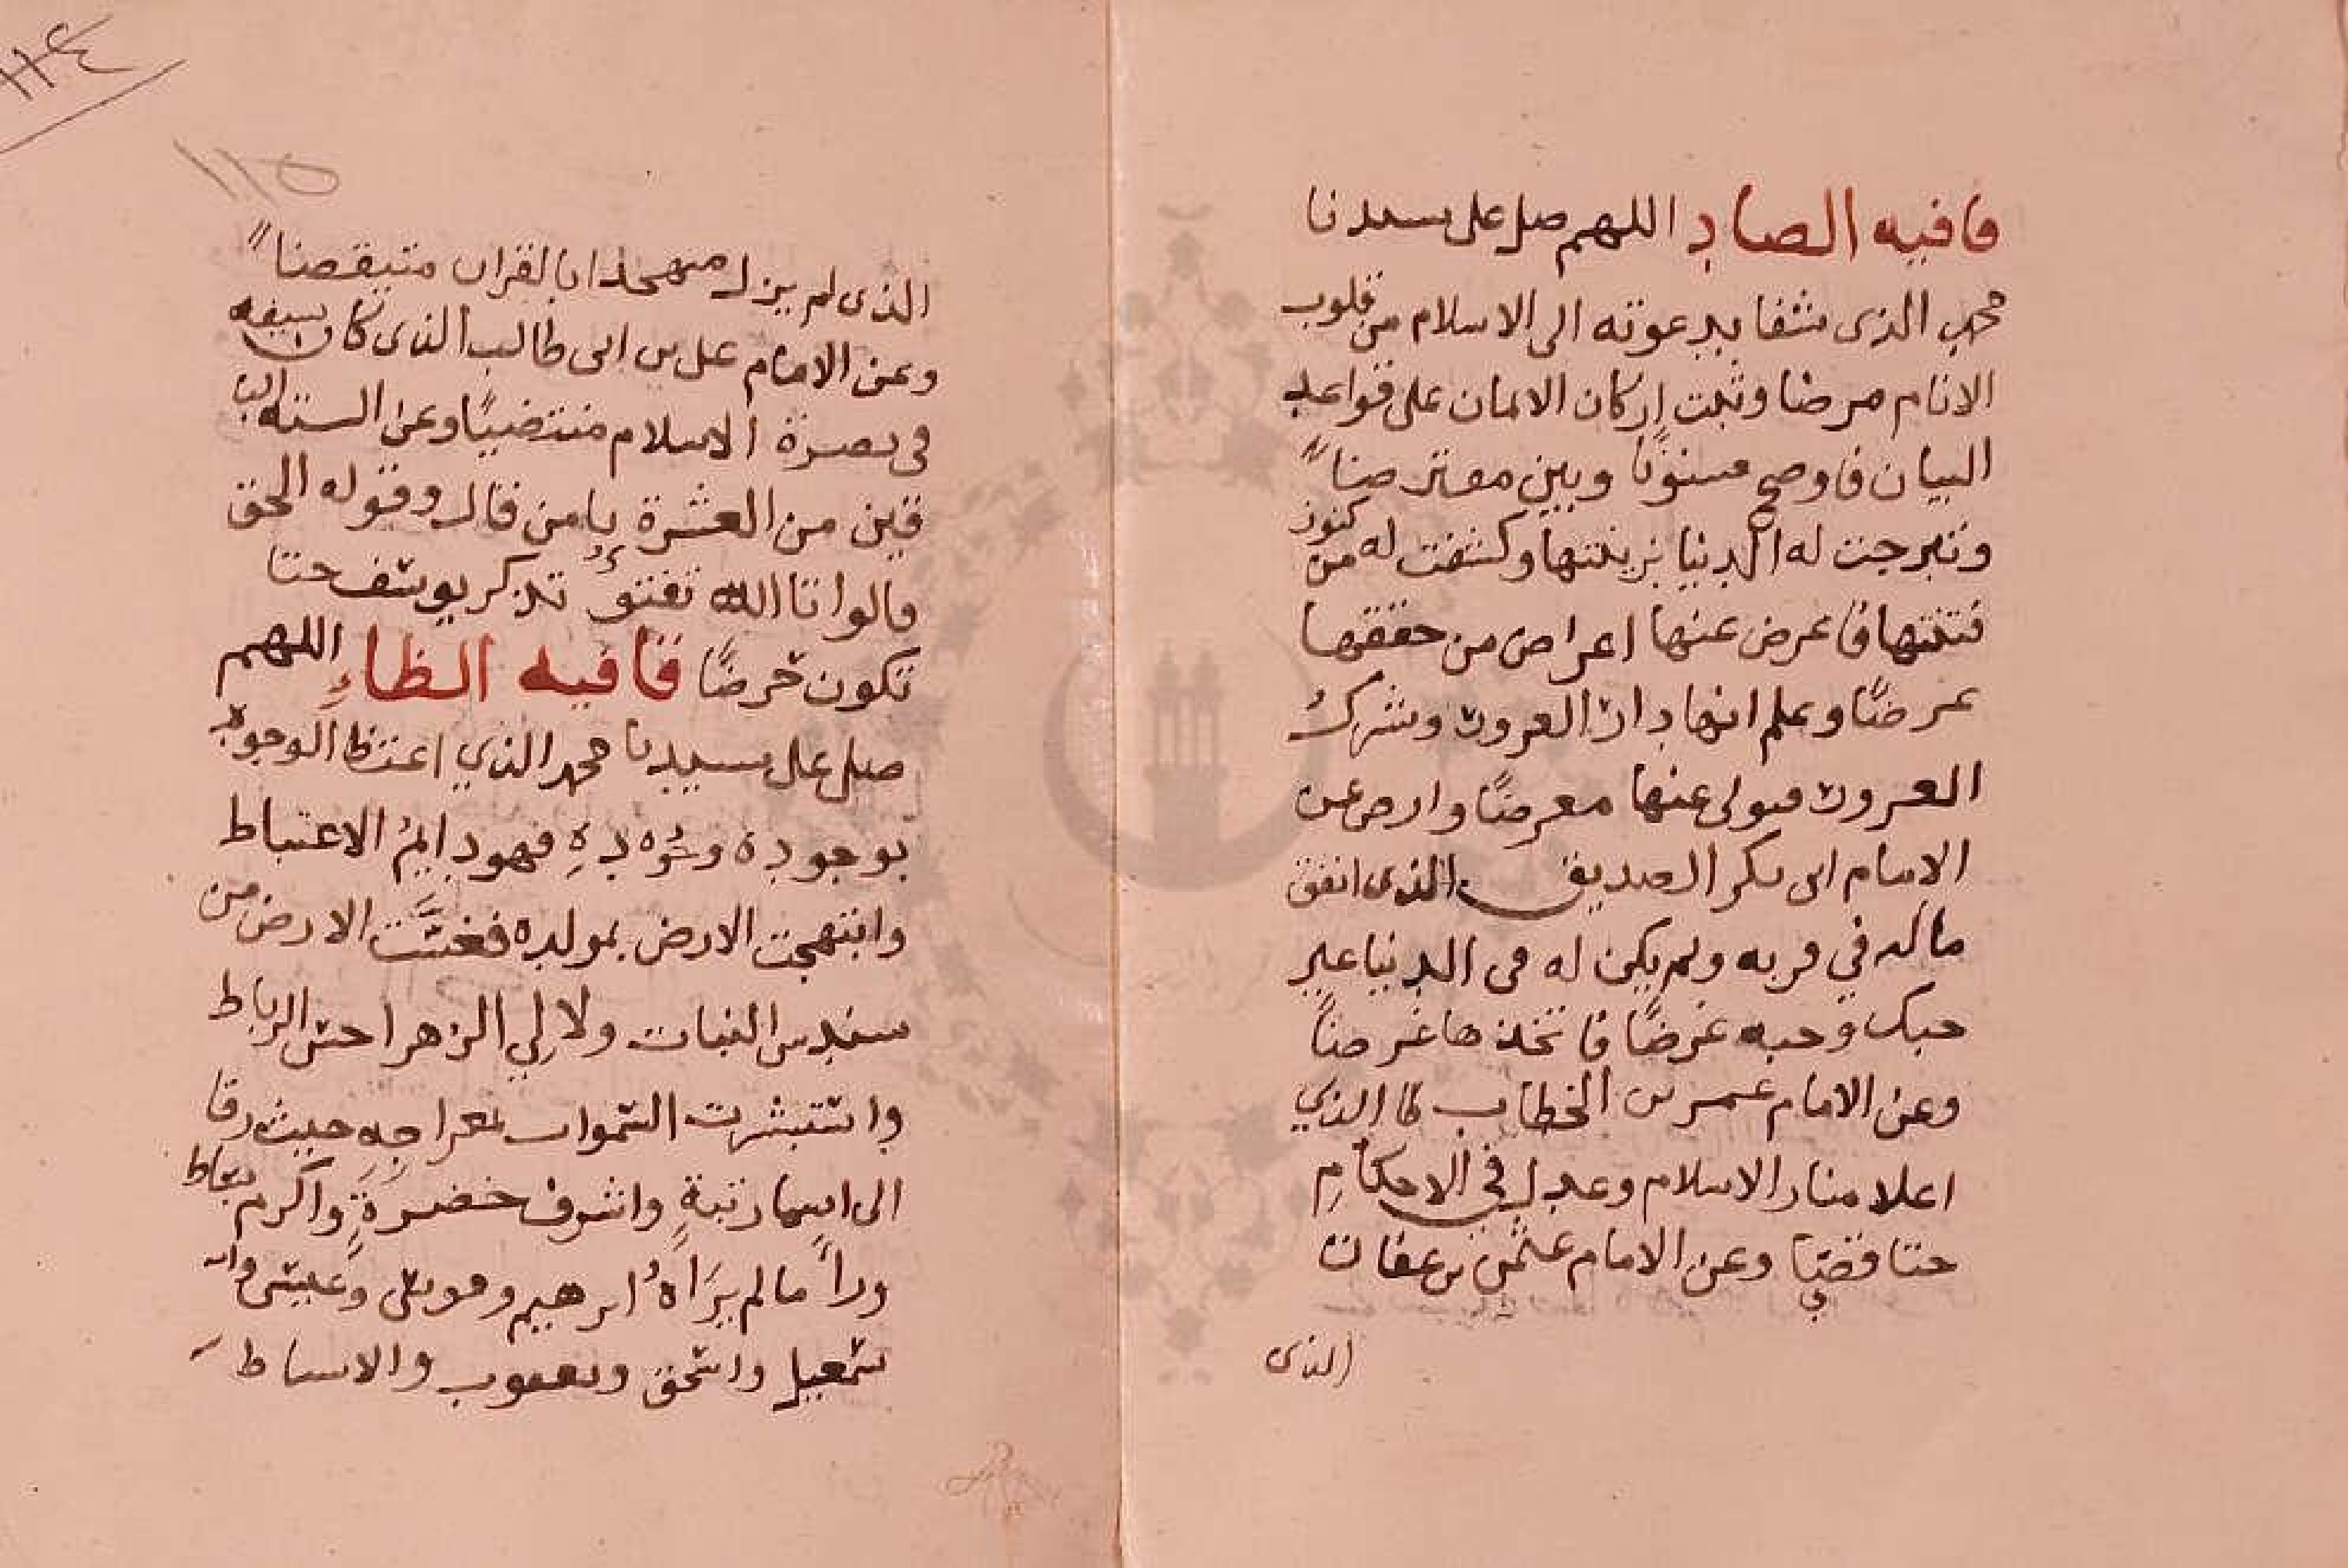 قافيه الصاد اللهم صل على سيدنا
محمد الذى شفا بدعوته الى الاسلام من قلوب
الانام مرضا وثبت اركان الايمان على قواعد
البيان فاوضح مسنونًا وبين مفترضاً
وتبرجت له الدنيا بزينتها وكشفت له من كنوز
فتنتها فاعرض عنها اعراض من حققها
عرضًا وعلم انها دار الغرور وشرك
الغرور فتولى عنها معرضًا وارض عن
الامام ابى بكر الصديق الذى انفق
ماله في قربه ولم يكن له فى الدنيا غير
حبك وحبه غرضًا فاتخذها غرضاً
وعن الامام عمر بن الخطاب الذي
اعلا منار الاسلام وعدل في الاحكامِ
حتا قضيا وعن الامام عثمن بن عفان
الذى
١١٤
١١٥
الذى لم يزل متهجدا بالقران متيقضاً
وعن الامام على بن ابى طالب الذى كان سيفه
فى نصرة الاسلام منتضيًا وعن الستة البا
قين من العشرة يا من قال وقوله الحق
قالوا تا الله تفتؤُ تذكر يوسف حتا
تكون حرضًا قافيه الظاءِ اللهم
صل على سيدنا محمد الذي اغتظا الوجود
بوجوده وجُودهِ فهو دايمُ الاغتباط
وابتهجت الارض بمولده فغشَّت الارض من
سندس النبات ولالي الزهرا حتى الرباط
واستبشرت السموات بمعراجهِ حيث رقا
الى اسما رتبةٍ واشرف حضرةٍ واكرم بساط
وراَ ما لم يَرَاهُ ابرهيم وموسى وعيسى وا
سمعيل واسحق ويعقوب والاسباط